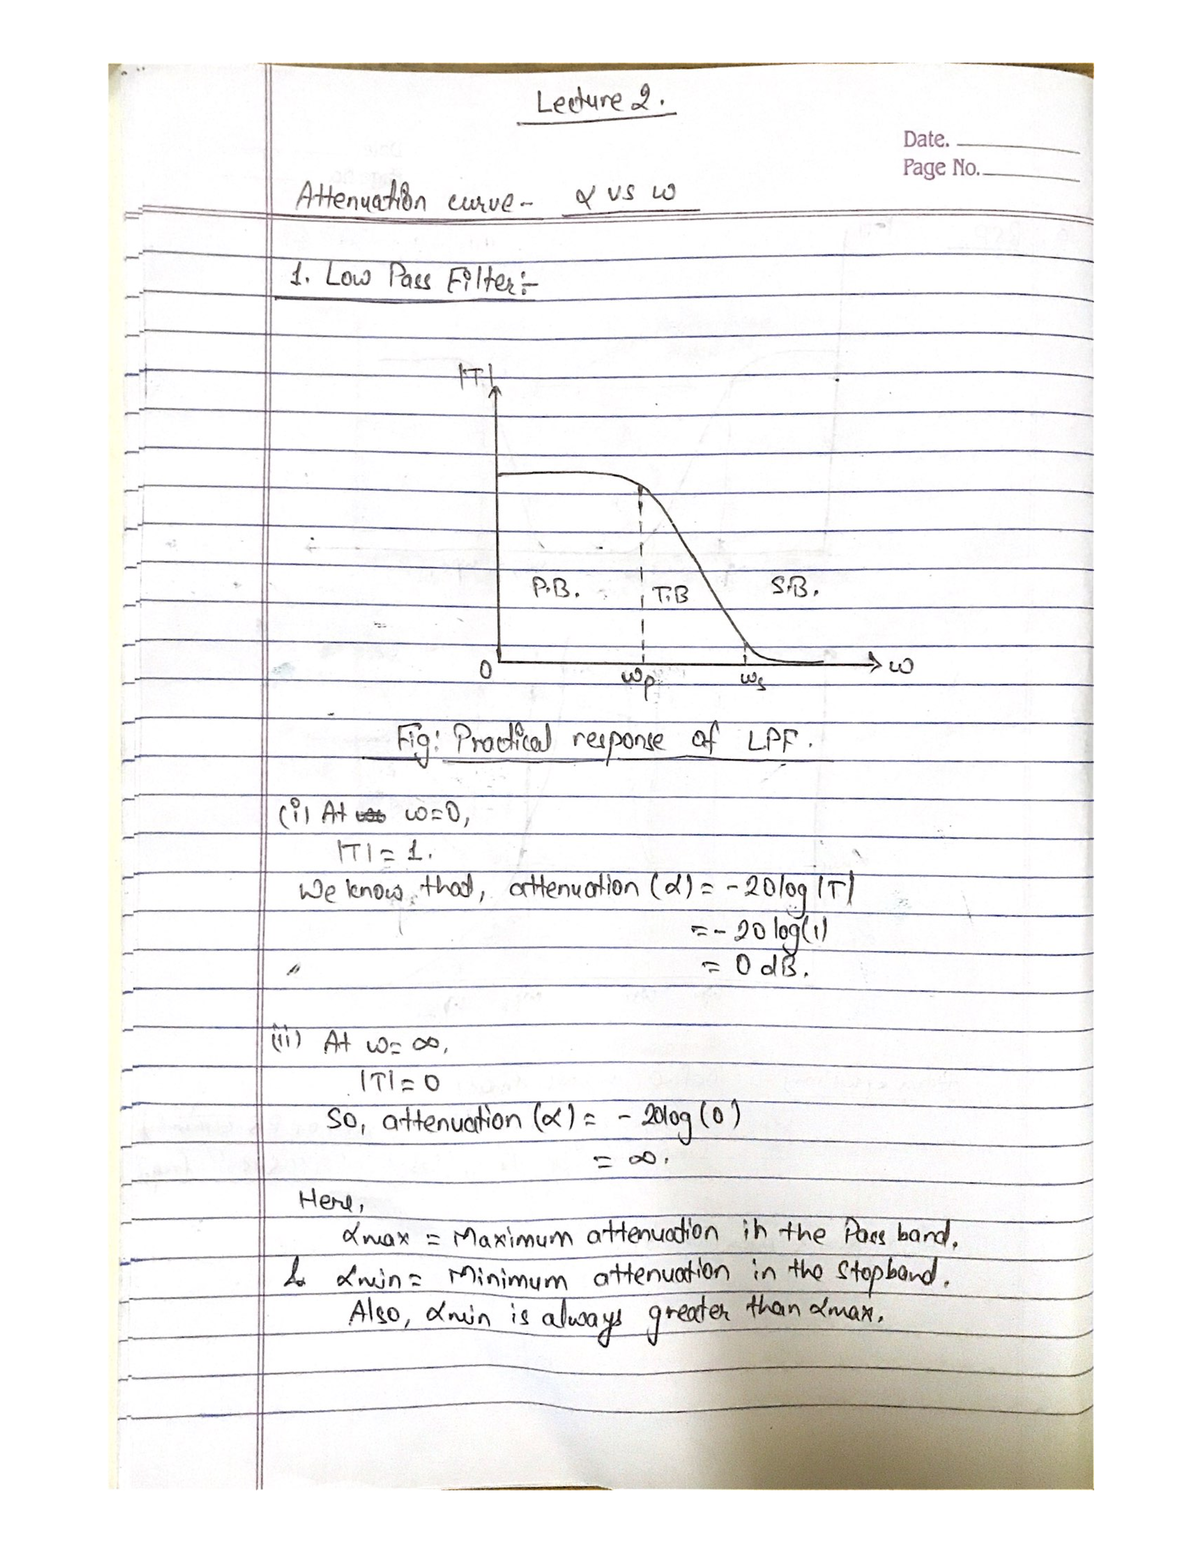 Lecture 2.
Date.
Page No.
Attenuation curve - α vs ω
1. Low Pass Filter:-
|T|
P.B.
T.B
S.B.
0
ωp
ωs
ω
Fig: Practical response of LPF.
(i) At ω=0,
|T| = 1.
We know that, attenuation (α) = -20log |T|
= - 20 log(1)
= 0 dB.
(ii) At ω= ∞,
|T| = 0
So, attenuation (α) = - 20log (0)
= ∞.
Here,
αmax = Maximum attenuation in the Pass band.
& αmin = Minimum attenuation in the stopband.
Also, αmin is always greater than αmax.